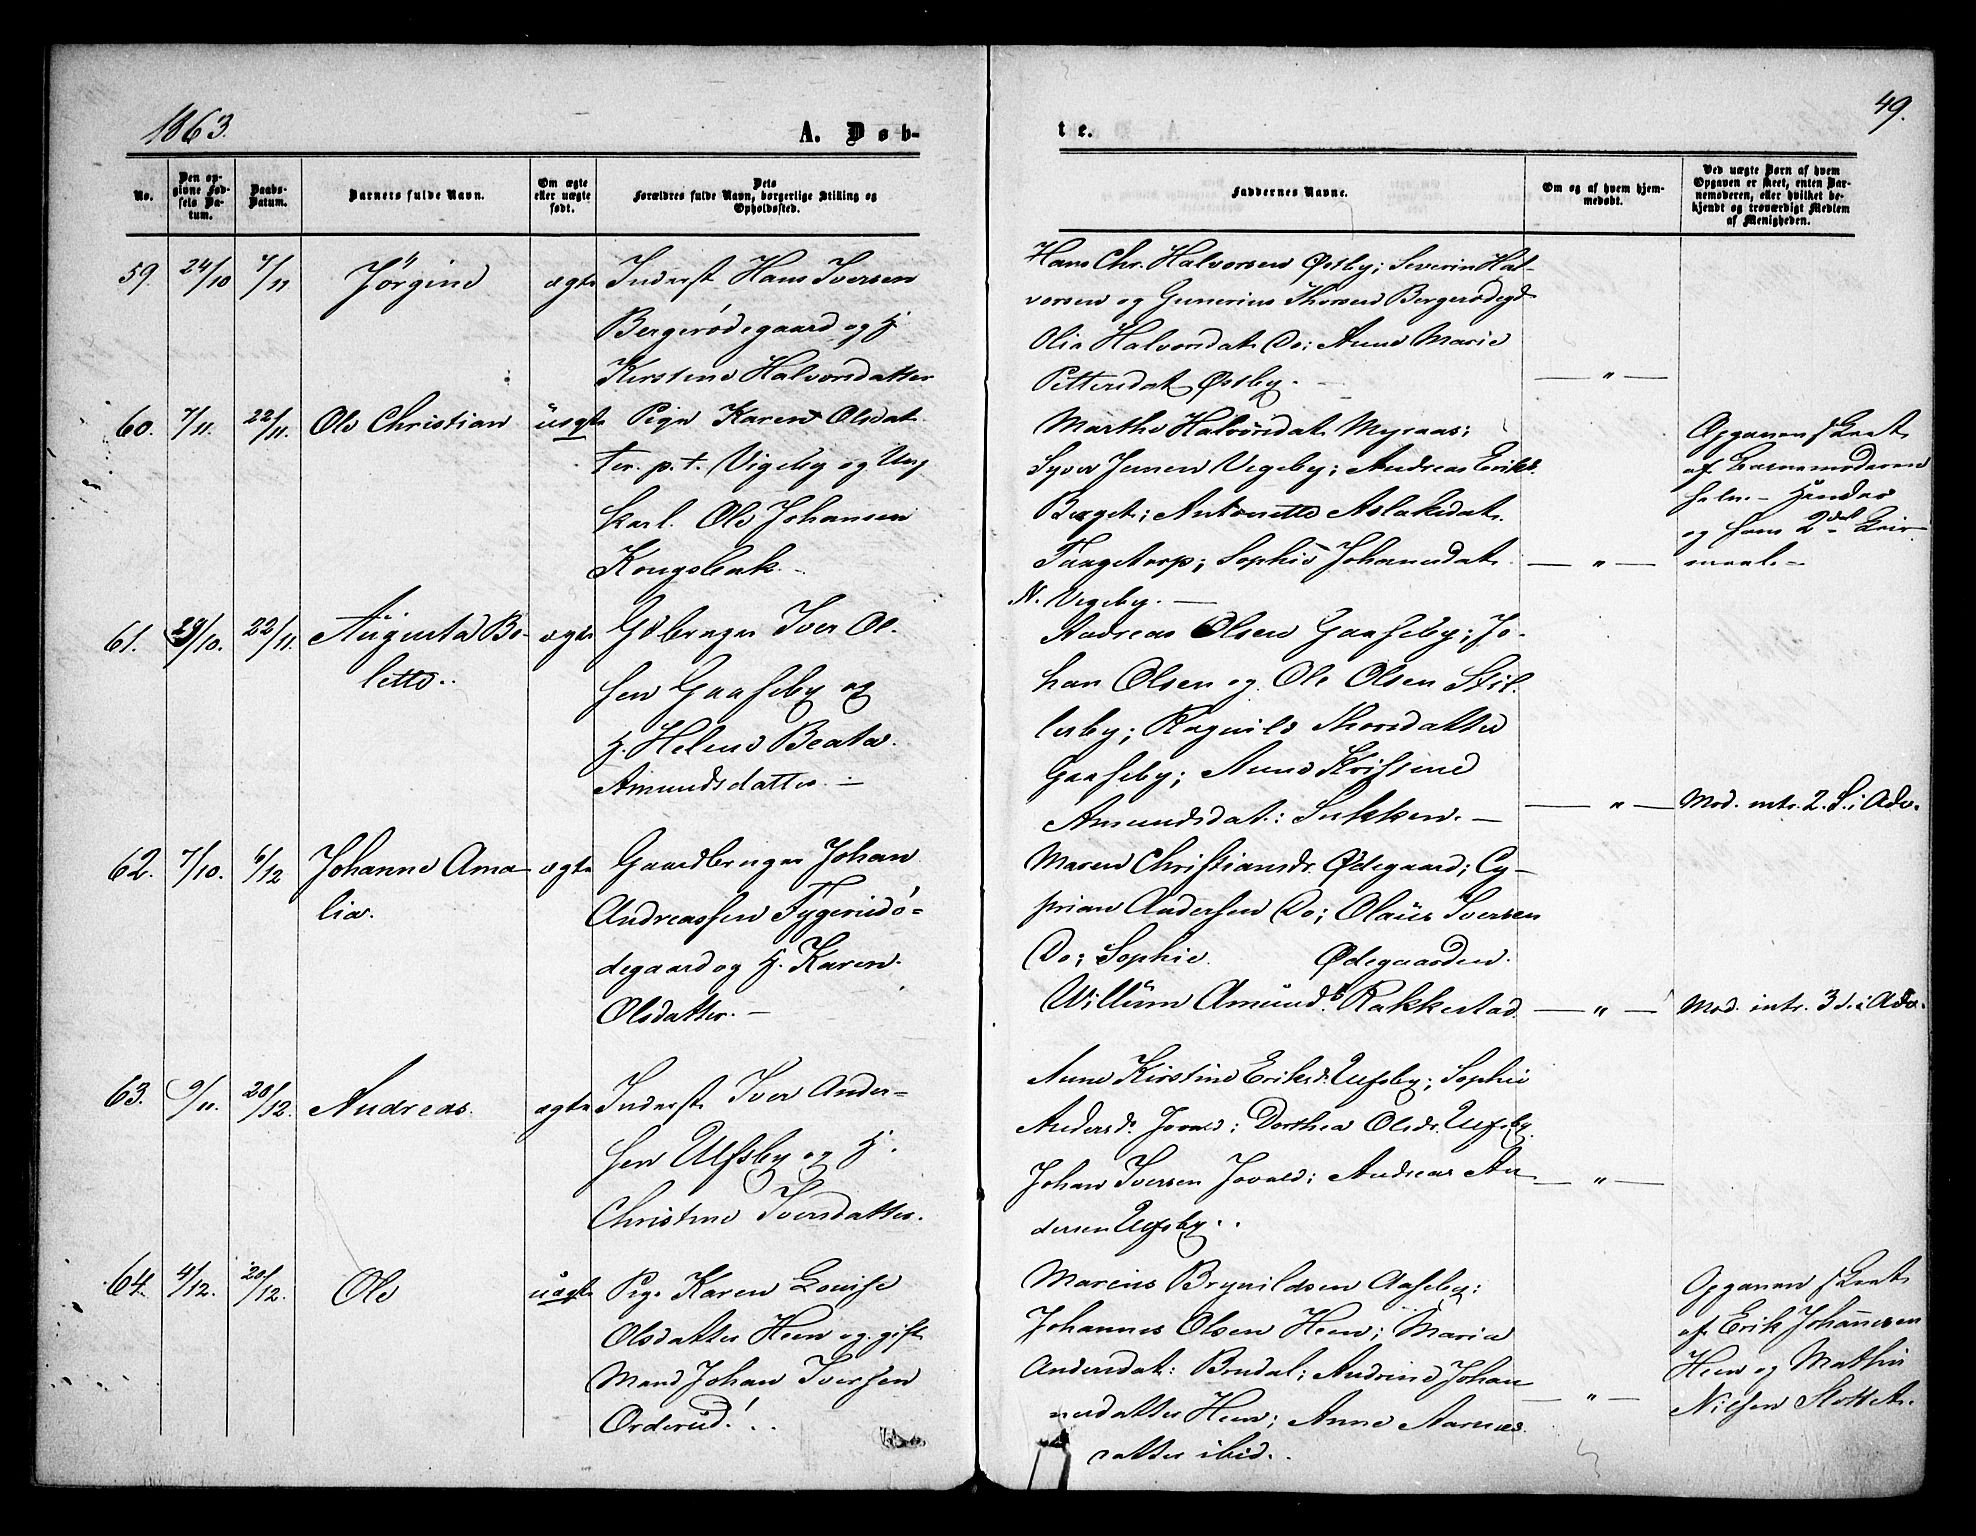 1863.
A. Døb-
te.
49.
No.
Den op-
givne Fød-
sels Da-
tum.
Daabs-
Datum.
Barnets fulde Navn.
Om ægte
eller uægte
født.
Dets
Forældres fulde Navn, borgerlige Stilling og
Opholdssted.
Faddernes Navne.
Om og af hvem hjem-
medøbt.
Ved uægte Børn af hvem
Opgaven er skeet, enten Bar-
nemoderen, eller hvilket be-
kjendt og troværdigt Medlem
af Menigheden.
59 24/10 /11 Jørgine ægte Inderst Hans Iversen
Bergerødegaard og H
Kirstine Halvorsdatter
Hans Chr. Halvorsen Østby; Severin Hal-
vorsen og Gunerius Thorsen Bergerødegd
Olia Halvorsdat. Do; Anne Marie
Pettersdat Østby. -
— " —
60. 7/11. 22/11. Ole Christian uægte Pige Karen Olsdat
ter. p.t. Vigeby og Ung
karl. Ole Johansen
Kongsbak.
Marthe Halvorsdat. Myraas;
Syver Jensen Vegeby; Andreas Eriks.
Berget; Antonette Aslaksdat.
Taagetorp; Sophie Johanesdat.
N. Vegeby. —
— " —
Opgaven skeet
af Barnemoderen
selv. - Hendes
og hans 2det Leier-
maal. -
61. 29/10. 22/11. Augusta Bo-
lette.
ægte Gdbruger Iver Ol-
sen Gaaseby og
H. Helene Beate
Amundsdatter. -
Andreas Olsen Gaaseby; Jo-
han Olsen og Ole Olsen Stil-
lesby; Ragnild Thorsdatter
Gaaseby; Anne Kristine
Amundsdat: Sukken. -
— " —
Mod. intr. 2. S. i Adv.
62. 7/10. 6/12 Johanne Ama
lia.
ægte Gaardbruger Johan
Andreassen Tygerødø-
degaard og H. Karen
Olsdatter. -
Maren Christiansdr. Ødegaard; Cy-
prian Andersen Do; Olaus Iversen
Do; Sophie Ødegaarden.
Willum Amunds. Rakkestad.
— " —
Mod. intr. 3 S. i Adv.
63. 9/11. 20/12. Andreas. ægte Inderst Iver Ander-
sen Ulfsby og H.
Christine Iversdatter.
Anne Kirstine Eriksd. Ulfsby; Sophie
Andersd. Jovald; Dorthea Olsdr. Ulfsby.
Johan Iversen Jovald; Andreas An
dersen Ulfsby.
— " —
64. 4/12. 20/12. Ole uægte Pige Karen Louise
Olsdatter Heen og gift
Mand Johan Iversen
Orderud!
Marius Brynildsen Aaseby;
Johannes Olsen Heen; Maria
Andersdat: Brudal; Andrine Johan
nesdatter Heen; Anne Aarnes
datter ibid.
— " —
Opgaven skeet
af Erik Johannesen
Heen og Mathis
Nilsen Slottet.